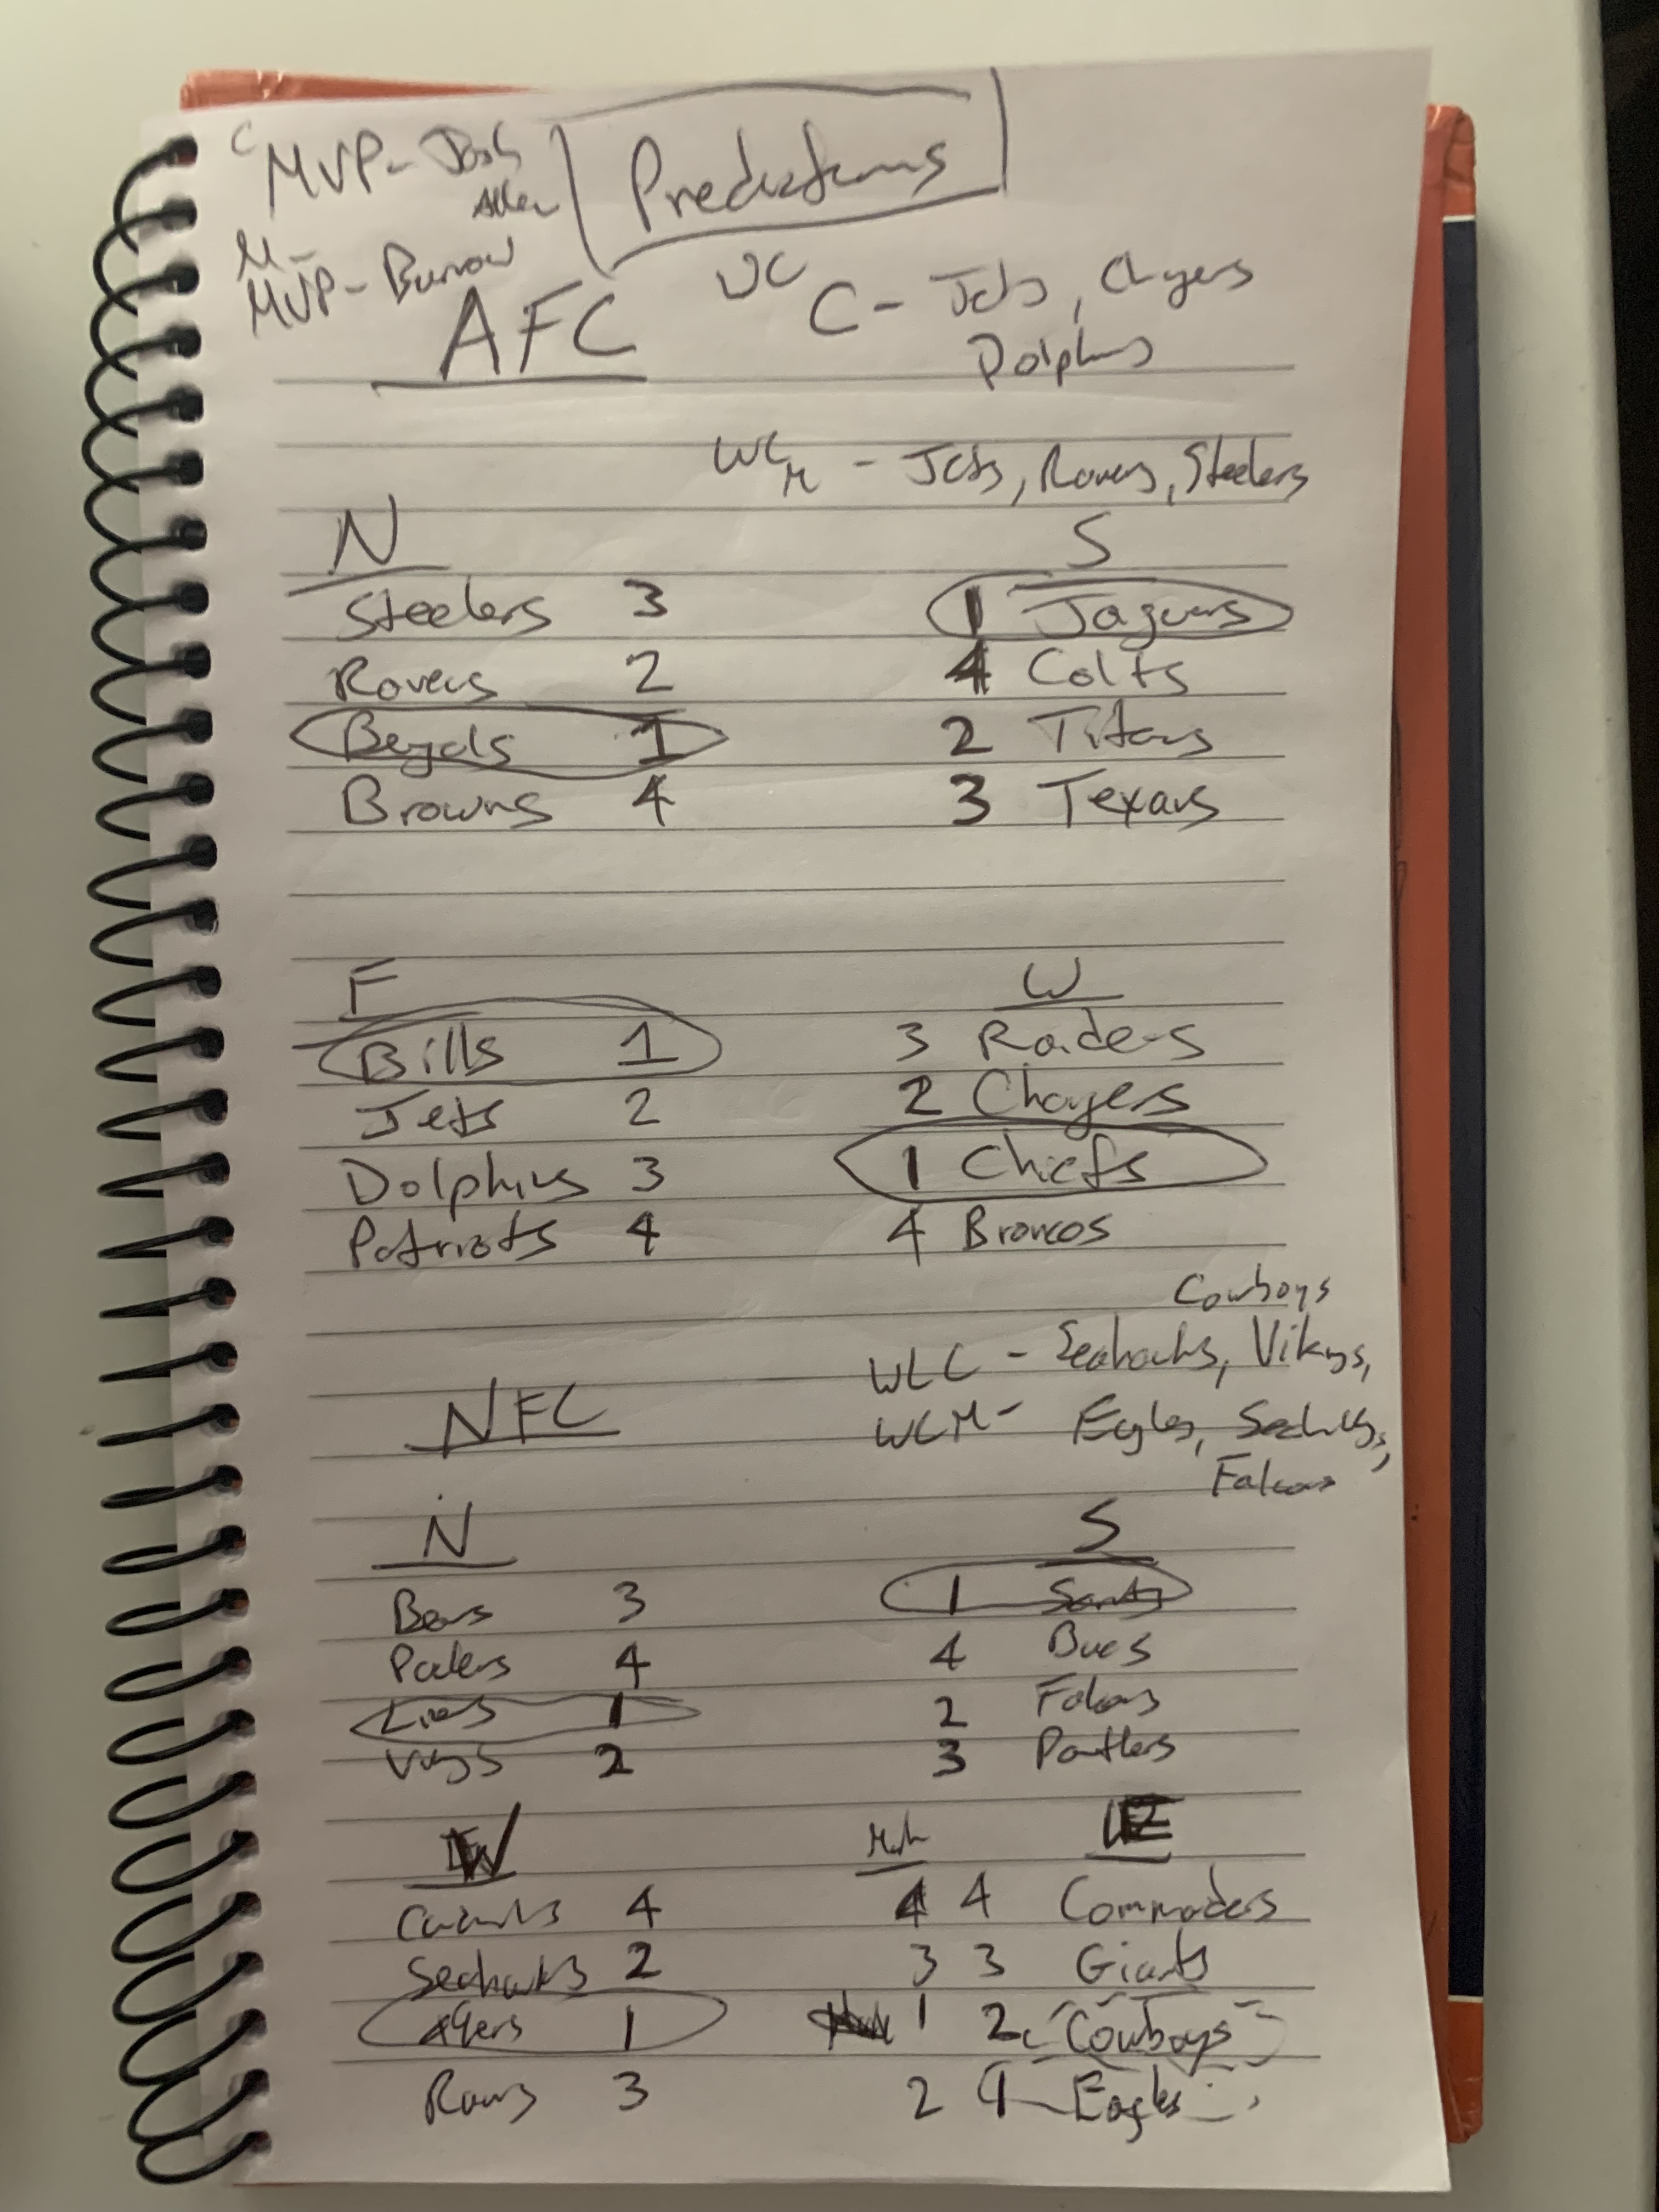 C MVP - Josh Allen
Predictions
M -
MVP - Burrow
AFC
WC C - Jets, Chargers
Dolphins
WC M - Jets, Ravens, Steelers
N
S
Steelers 3
1 Jaguars
Ravens 2
4 Colts
Bengals 1
2 Titans
Browns 4
3 Texans
E
W
Bills 1
3 Raiders
Jets 2
2 Chargers
Dolphins 3
1 Chiefs
Patriots 4
4 Broncos
Cowboys
WLC - Seahawks, Vikings,
NFC
WCM - Eagles, Seahawks,
Falcons
N
S
Bears 3
1 Saints
Packers 4
4 Bucs
Lions 1
2 Falcons
Vikings 2
3 Panthers
W
E
Cardinals 4
4 4 Commaders
Seahawks 2
3 3 Giants
49ers 1
1 2 Cowboys
Rams 3
2 1 Eagles